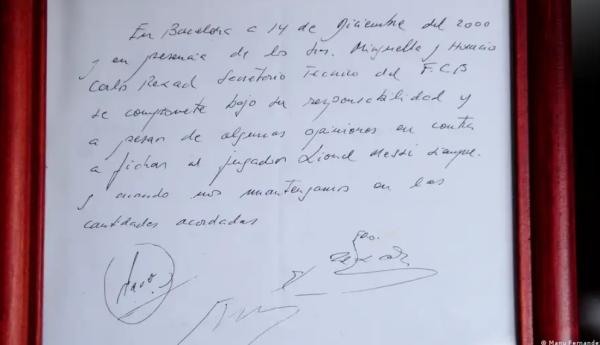 En Barcelona a 14 de Diciembre del 2000
y en presencia de los Srs. Minguella y Horacio
Carlo Rexach Secretorio Tecnico del F.C.B
se compromete bajo su responsabilidad y
a pesar de algunas opiniones en contra
a fichar al jugador Lionel Messi siempre.
y cuando nos mantengamos en las
cantidades acordadas
© Manu Fernande